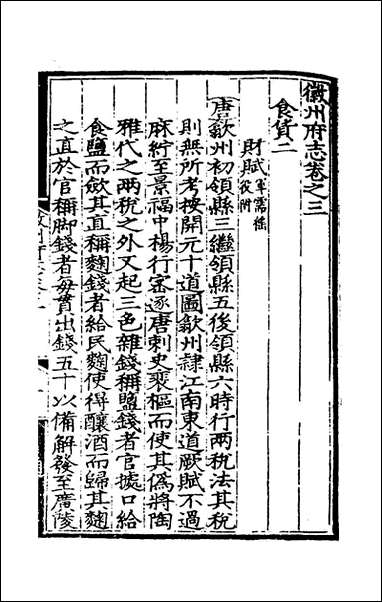 徽州府志卷之三
食貨二
財賦軍需徭役附
唐歙州初領縣三繼領縣五後領縣六時行兩稅法其稅
則無所考按開元十道圖歙州隸江南東道厥賦不過
麻紵至景福中楊行密逐唐刺史裴樞而使其僞將陶
雅代之兩稅之外又起三色雜錢稱鹽錢者官據口給
食鹽而歛其直稱麴錢者給民麴使得釀酒而歸其麴
之直於官稱脚錢者每貫出錢五十以備解發至廣陵